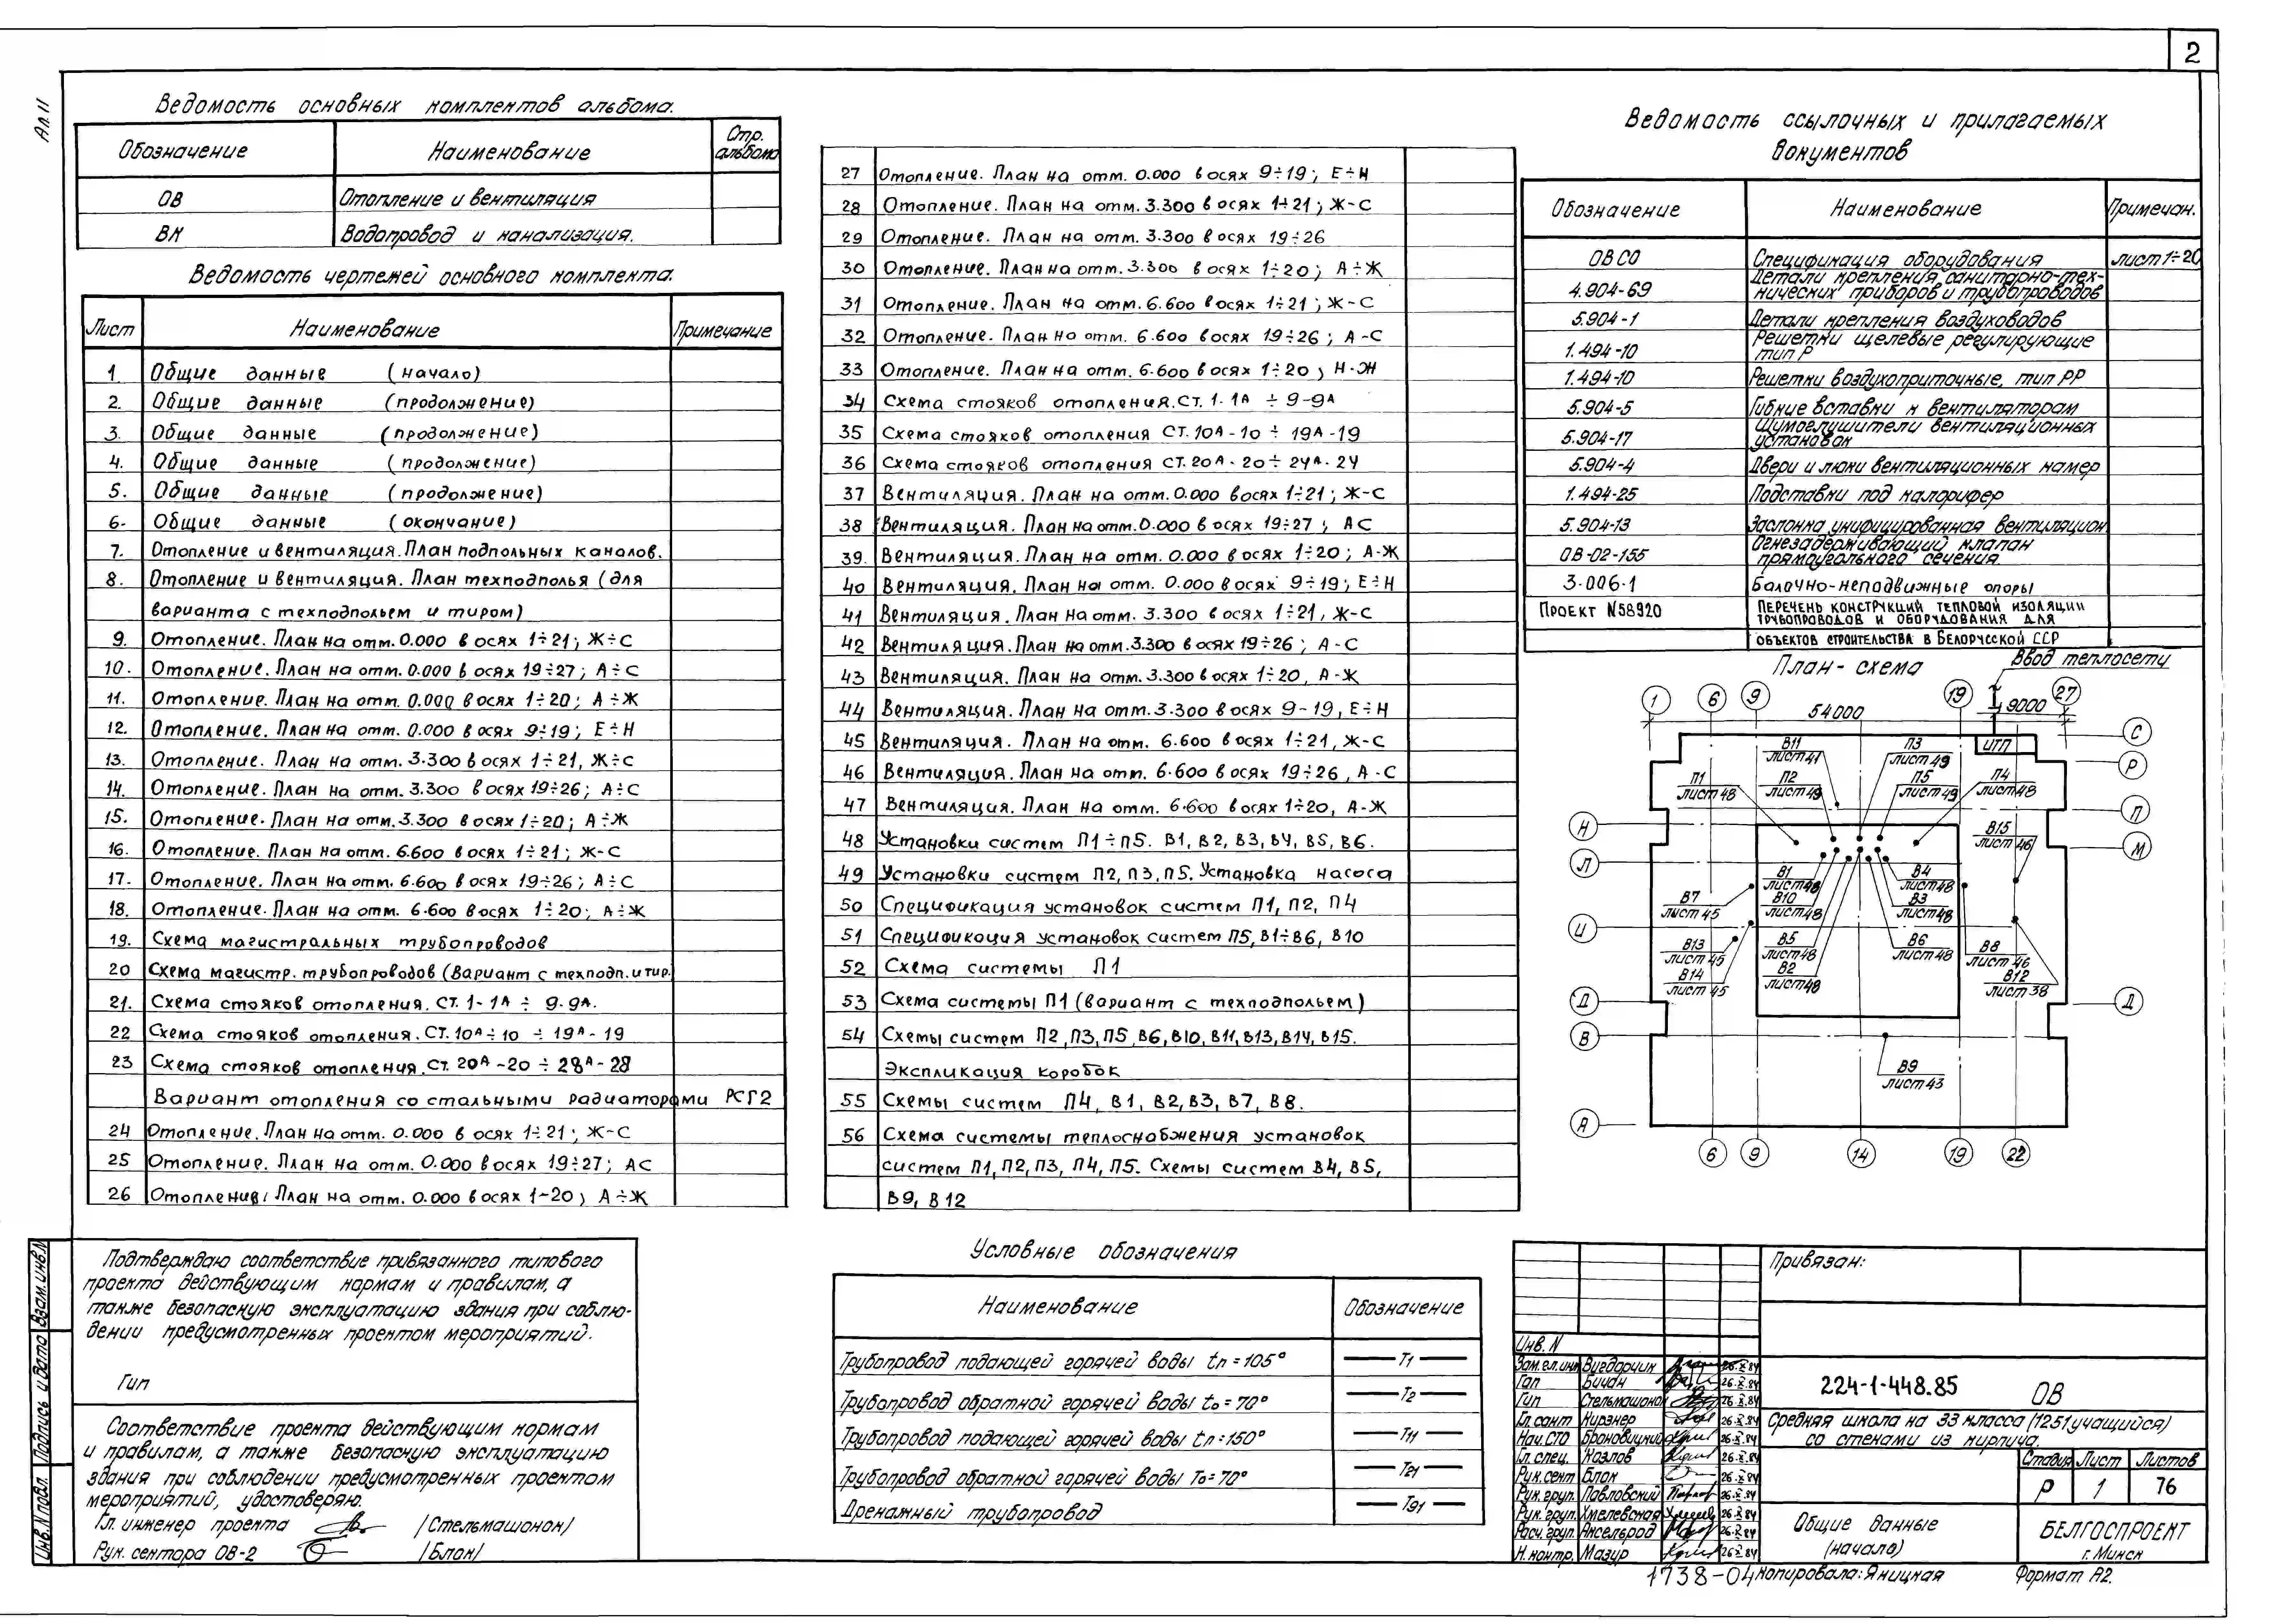 2
Ал. 11
Ведомость основных комплектов альбома.
Обозначение Наименование Стр. альбома
ОВ Отопление и вентиляция
ВК Водопровод и канализация.
Ведомость чертежей основного комплекта.
Лист Наименование Примечание
1 Общие данные (начало)
2. Общие данные (продолжение)
3. Общие данные (продолжение)
4. Общие данные (продолжение)
5. Общие данные (продолжение)
6. Общие данные (окончание)
7. Отопление и вентиляция. План подпольных каналов.
8. Отопление и вентиляция. План техподполья (для
варианта с техподпольем и тиром)
9. Отопление. План на отм. 0.000 в осях 1÷21; Ж÷С
10. Отопление. План на отм. 0.000 в осях 19÷27; А÷С
11. Отопление. План на отм. 0.000 в осях 1÷20; А÷Ж
12. Отопление. План на отм. 0.000 в осях 9÷19; Е÷Н
13. Отопление. План на отм. 3.300 в осях 1÷21, Ж÷С
14. Отопление. План на отм. 3.300 в осях 19÷26; А÷С
15. Отопление. План на отм. 3.300 в осях 1÷20; А÷Ж
16. Отопление. План на отм. 6.600 в осях 1÷21; Ж-С
17. Отопление. План на отм. 6.600 в осях 19÷26; А÷С
18. Отопление. План на отм. 6.600 в осях 1÷20; А÷Ж
19. Схема магистральных трубопроводов
20 Схема магистр. трубопроводов (вариант с техподп. и тир.
21. Схема стояков отопления. Ст. 1-1А ÷ 9-9А.
22 Схема стояков отопления. Ст. 10А÷10 ÷ 19А-19
23 Схема стояков отопления. Ст. 20А-20 ÷ 28А-28
Вариант отопления со стальными радиаторами РСГ2
24 Отопление. План на отм. 0.000 в осях 1÷21; Ж-С
25 Отопление. План на отм. 0.000 в осях 19÷27; АС
26 Отопление. План на отм. 0.000 в осях 1-20; А÷Ж
27 Отопление. План на отм. 0.000 в осях 9÷19; Е÷Н
28 Отопление. План на отм. 3.300 в осях 1÷21; Ж-С
29 Отопление. План на отм. 3.300 в осях 19÷26
30 Отопление. План на отм. 3.300 в осях 1÷20; А÷Ж
31 Отопление. План на отм. 6.600 в осях 1÷21; Ж-С
32 Отопление. План на отм. 6.600 в осях 19÷26; А-С
33 Отопление. План на отм. 6.600 в осях 1÷20; Н-Ж
34 Схема стояков отопления. Ст. 1-1А ÷ 9-9А
35 Схема стояков отопления Ст. 10А-10 ÷ 19А-19
36 Схема стояков отопления Ст. 20А-20 ÷ 24А-24
37 Вентиляция. План на отм. 0.000 в осях 1÷21; Ж-С
38 Вентиляция. План на отм. 0.000 в осях 19÷27; АС
39. Вентиляция. План на отм. 0.000 в осях 1÷20; А-Ж
40 Вентиляция. План на отм. 0.000 в осях 9÷19; Е÷Н
41 Вентиляция. План на отм. 3.300 в осях 1÷21, Ж-С
42 Вентиляция. План на отм. 3.300 в осях 19÷26; А-С
43 Вентиляция. План на отм. 3.300 в осях 1÷20, А-Ж
44 Вентиляция. План на отм. 3.300 в осях 9-19, Е÷Н
45 Вентиляция. План на отм. 6.600 в осях 1÷21, Ж-С
46 Вентиляция. План на отм. 6.600 в осях 19÷26, А-С
47 Вентиляция. План на отм. 6.600 в осях 1÷20, А-Ж
48 Установки систем П1÷П5. В1, В2, В3, В4, В5, В6.
49 Установки систем П2, П3, П5. Установка насоса
50 Спецификация установок систем П1, П2, П4
51 Спецификация установок систем П5, В1÷В6, В10
52 Схема системы П1
53 Схема системы П1 (вариант с техподпольем)
54 Схемы систем П2, П3, П5, В6, В10, В11, В13, В14, В15.
Экспликация коробок
55 Схемы систем П4, В1, В2, В3, В7, В8.
56 Схема системы теплоснабжения установок
систем П1, П2, П3, П4, П5. Схемы систем В4, В5,
В9, В12
Ведомость ссылочных и прилагаемых
документов
Обозначение Наименование Примечан.
ОВ СО Спецификация оборудования лист 1÷20
4.904-69 Детали крепления санитарно-тех-
нических приборов и трубопроводов
5.904-1 Детали крепления воздуховодов
1.494-10 Решетки щелевые регулирующие
тип Р
1.494-10 Решетки воздухоприточные, тип РР
5.904-5 Гибкие вставки к вентиляторам
5.904-17 Шумоглушители вентиляционных
установок
5.904-4 Двери и люки вентиляционных камер
1.494-25 Подставки под калорифер
5.904-13 Заслонка унифицированная вентиляцион
ОВ-02-155 Огнезадерживающий клапан
прямоугольного сечения.
3.006-1 Балочно-неподвижные опоры
Проект N58920 Перечень конструкций тепловой изоляции
трубопроводов и оборудования для
объектов строительства в Белорусской ССР
План-схема
Ввод теплосети
1 6 9 19 27
54000 9000
С
Р
П
М
Д
Н
Л
И
Д
В
А
6 9 14 19 22
ИТП
В11 лист 41
П3 лист 49
П1 лист 48
П2 лист 49
П5 лист 49
П4 лист 48
В15 лист 46
В1 лист 48
В4 лист 48
В7 лист 45
В10 лист 48
В3 лист 48
В13 лист 45
В5 лист 48
В6 лист 48
В8 лист 46
В14 лист 45
В2 лист 48
В12 лист 38
В9 лист 43
Подтверждаю соответствие привязанного типового
проекта действующим нормам и правилам, а
также безопасную эксплуатацию здания при соблю-
дении предусмотренных проектом мероприятий.
Гип
Соответствие проекта действующим нормам
и правилам, а также безопасную эксплуатацию
здания при соблюдении предусмотренных проектом
мероприятий, удостоверяю.
Гл. инженер проекта /Стельмашонок/
Рук. сектора ОВ-2 /Блок/
Взам. инв. N
Подпись и дата
Инв. N подл.
Условные обозначения
Наименование Обозначение
Трубопровод подающей горячей воды tп = 105° Т1
Трубопровод обратной горячей воды tо = 70° Т2
Трубопровод подающей горячей воды tп = 150° Т11
Трубопровод обратной горячей воды То = 70° Т21
Дренажный трубопровод Т91
Привязан:
Инв. N
Зам. гл. инж Вигдорчик 26.X.84
Гап Бичан 26.X.84
Гип Стельмашонок 26.X.84
Гл. сант Кирзнер 26.X.84
Нач. СТО Броновицкий 26.X.84
Гл. спец. Козлов 26.X.84
Рук. сект Блок 26.X.84
Рук. груп. Павловский 26.X.84
Рук. груп. Хмелевская 26.X.84
Расч. груп. Аксельрод 26.X.84
Н. контр. Мазур 26.X.84
224-1-448.85 ОВ
Средняя школа на 33 класса (1251 учащийся)
со стенами из кирпича.
Стадия Лист Листов
Р 1 76
Общие данные
(начало)
БЕЛГОСПРОЕКТ
г. Минск
1738-04 Копировала: Яницкая Формат А2.